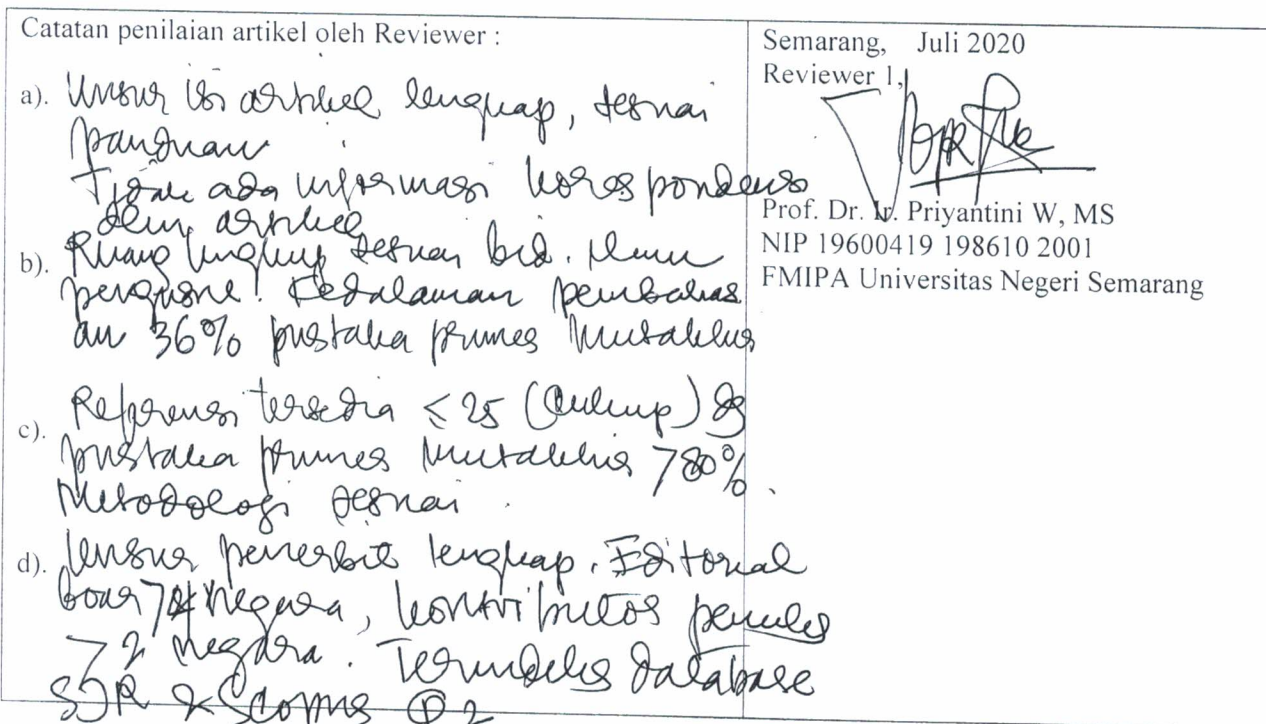 Catatan penilaian artikel oleh Reviewer :
a). Unsur isi artikel lengkap, sesuai
panduan
Tidak ada informasi korespondensi
dlm artikel
b). Ruang lingkup sesuai bid. ilmu
pengusul. Kedalaman pembahas
an 36% pustaka primer mutakhir
c). Referensi tersedia ≤ 25 (cukup) dg
pustaka primer mutakhir >80%.
Metodologi sesuai.
d). Unsur penerbit lengkap. Editorial
negara, kontributor penulis
>2 negara. Terindeks database
SJR & Scopus Q2
Semarang, Juli 2020
Reviewer 1,
Prof. Dr. Ir. Priyantini W, MS
NIP 19600419 198610 2001
FMIPA Universitas Negeri Semarang